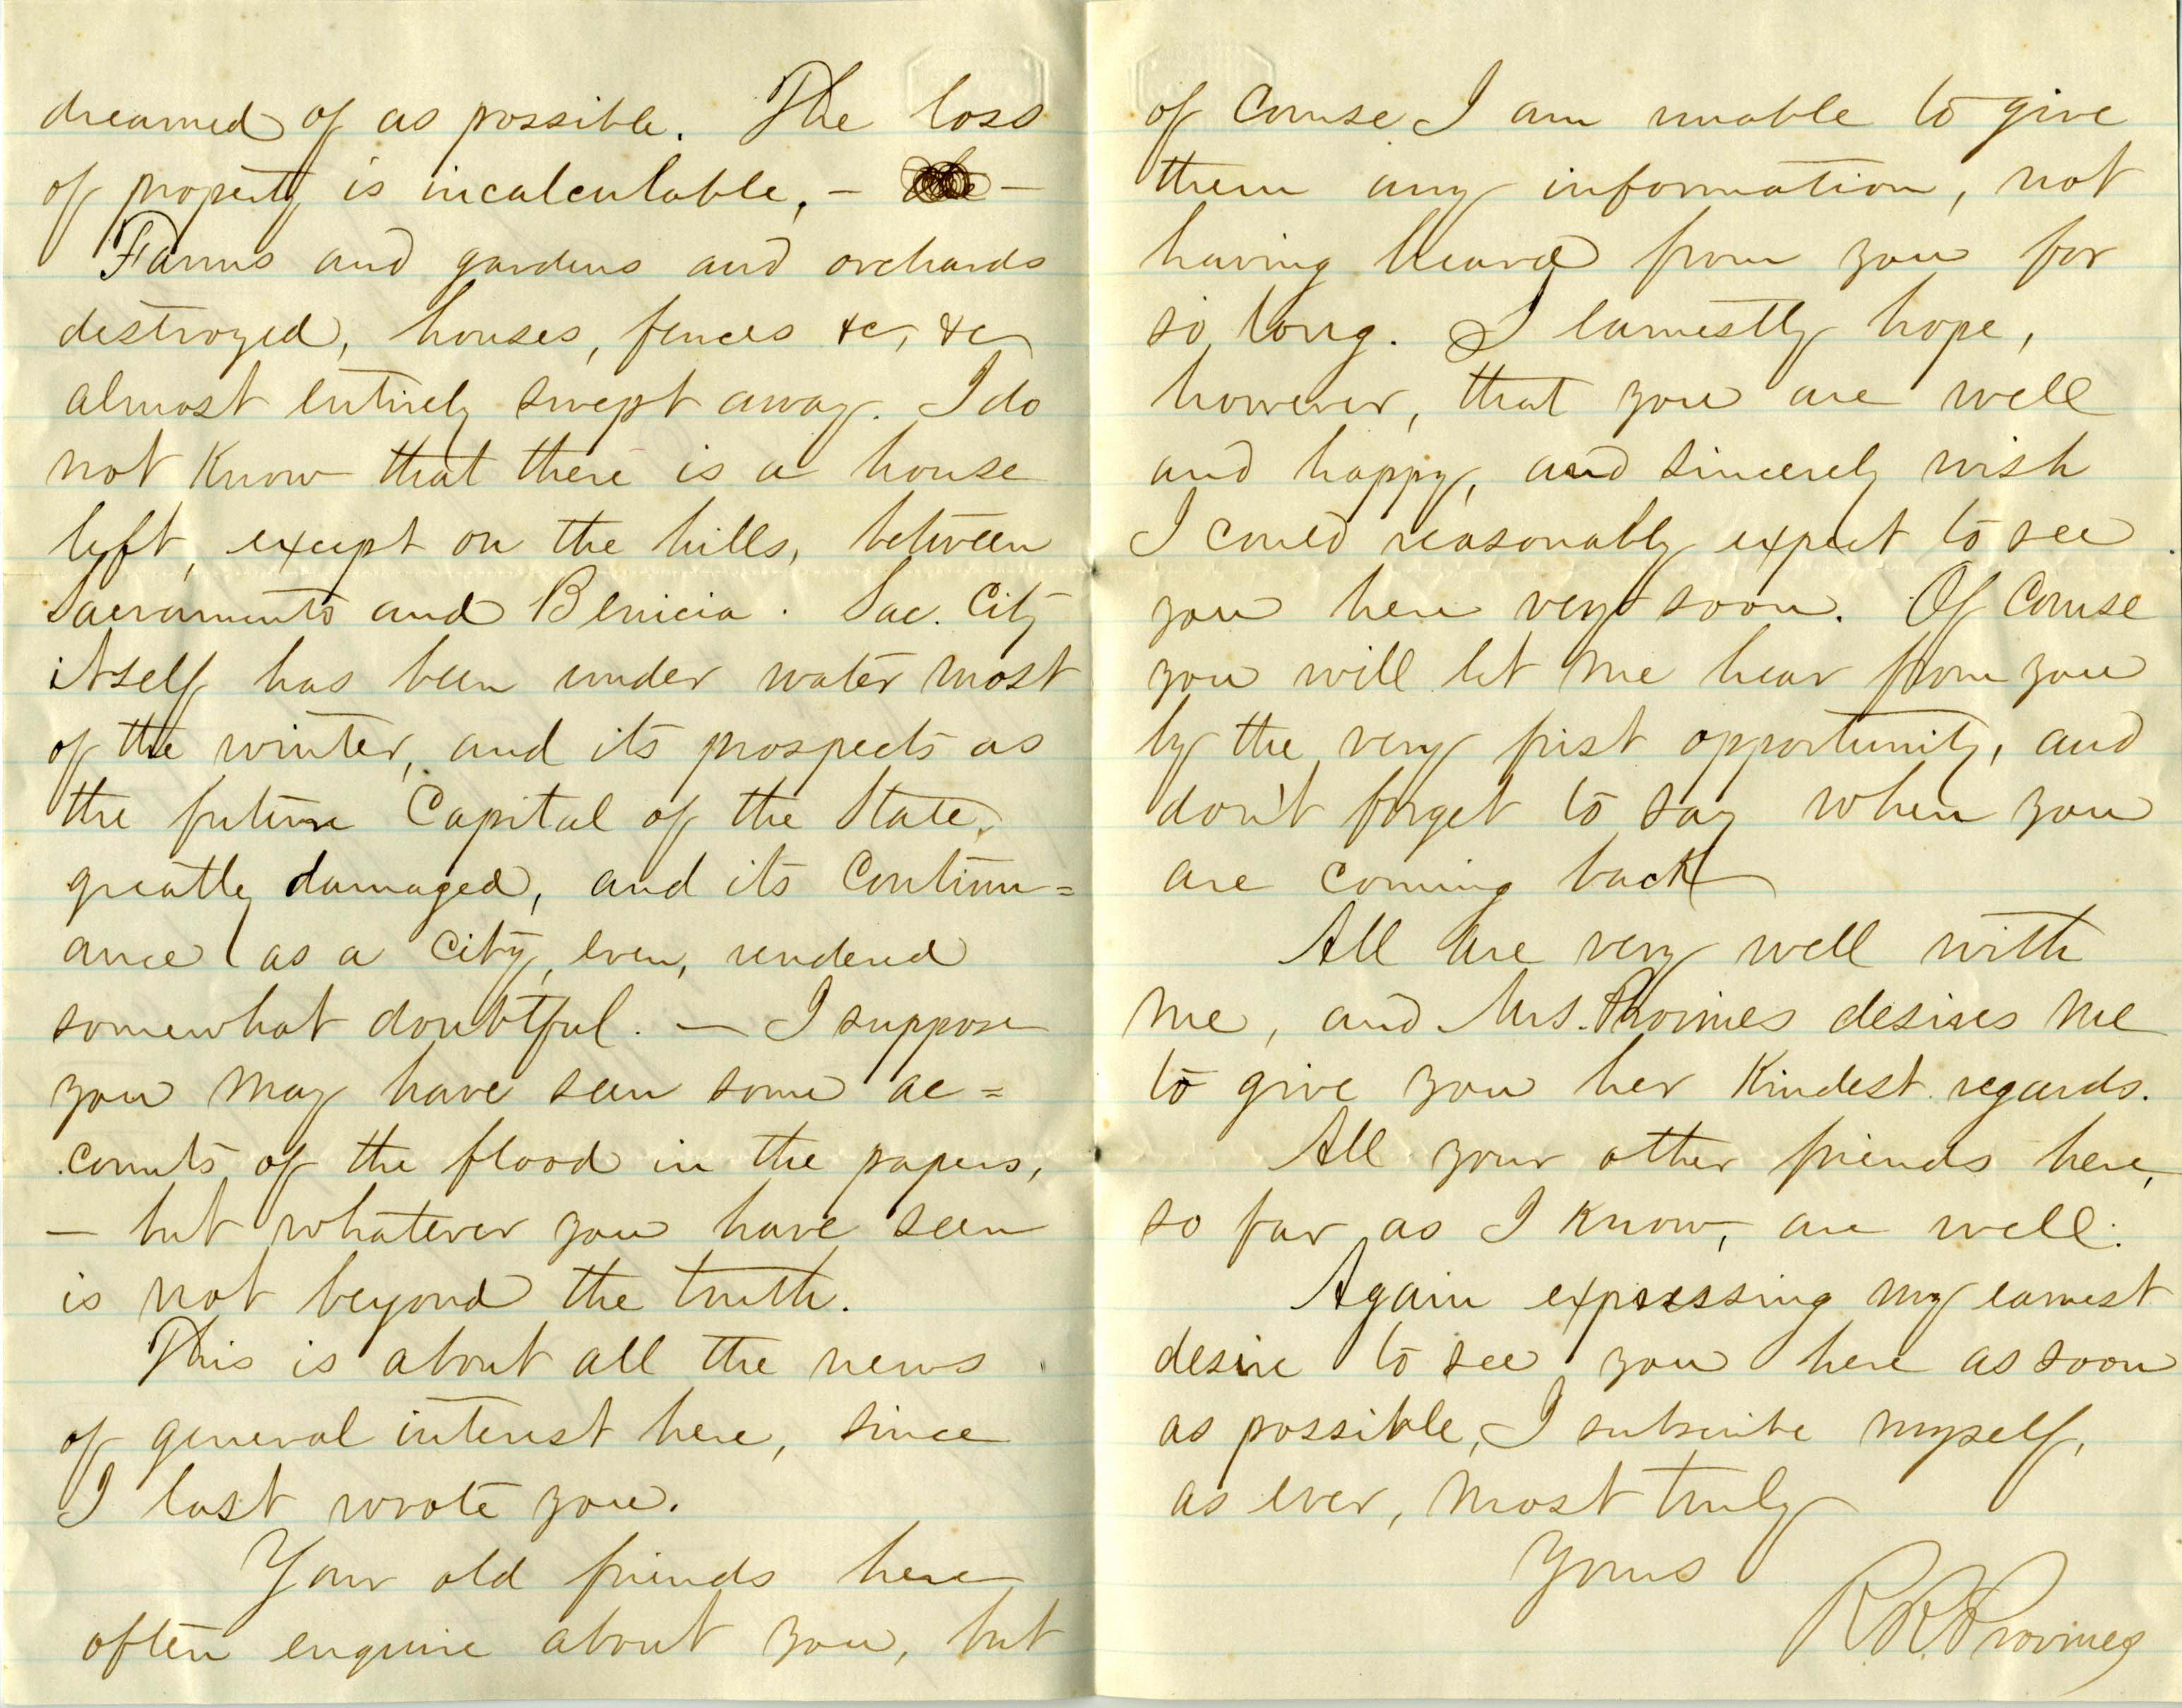 dreamed of as possible. The loss
of property is incalculable, - -
Farms and gardens and orchards
destroyed, houses, fences &c, &c
almost entirely swept away. I do
not know that there is a house
left, except on the hills, between
Sacramento and Benicia. Sac. City
itself has been under water most
of the winter, and its prospects as
the future Capital of the State,
greatly damaged, and its Continu=
ance as a City, even, rendered
somewhat doubtful. — I suppose
you may have seen some ac=
counts of the flood in the papers,
— but whatever you have seen
is not beyond the truth.
This is about all the news
of general interest here, since
I last wrote you.
Your old friends here
often enquire about you, but
of Course I am unable to give
them any information, not
having heard from you for
so long. I earnestly hope,
however, that you are well
and happy, and sincerely wish
I could reasonably expect to see
you here very soon. Of Course
you will let me hear from you
by the very first opportunity, and
don't forget to say when you
are coming back
All are very well with
me, and Mrs. Provines desires me
to give you her kindest regards.
All your other friends here,
so far as I know, are well.
Again expressing my earnest
desire to see you here as soon
as possible, I subscribe myself,
as ever, most truly
Yours
R. R. Provines